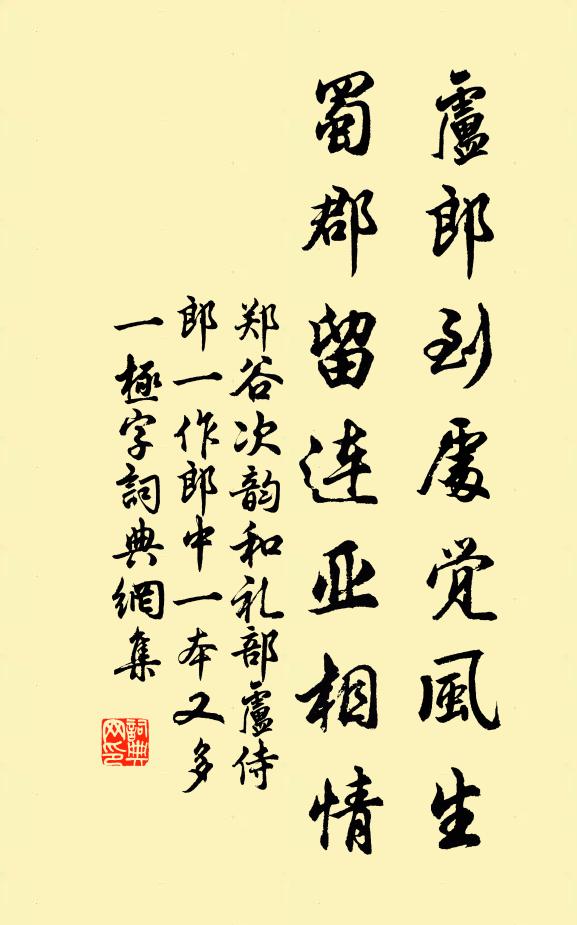 盧郎到處觉風生
蜀郡留连亚相情
郑谷次韵和礼部盧侍
郎一作郎中一本又多
一極字詞典網集
詞典
网印